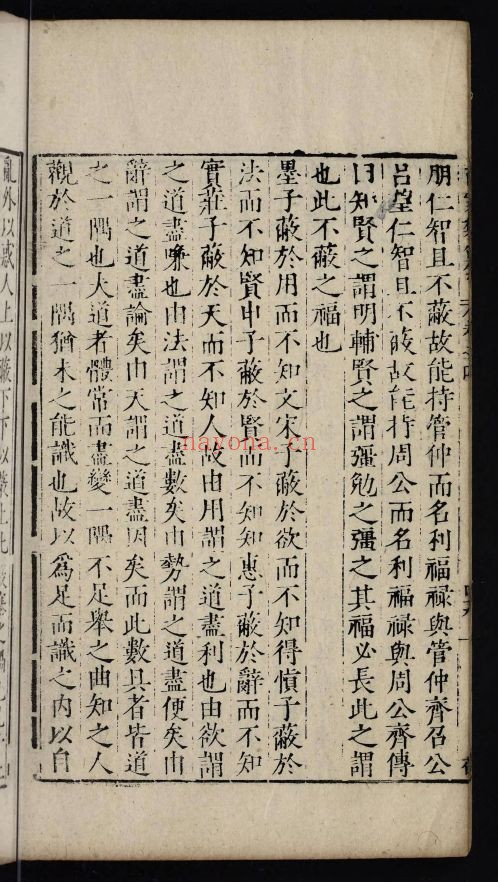 朋仁智且不蔽故能持管仲而名利福祿與管仲齊召公
呂望仁智且不蔽故能持周公而名利福祿與周公齊傳
曰知賢之謂明輔賢之謂彊勉之彊之其福必長此之謂
也此不蔽之福也
墨子蔽於用而不知文宋子蔽於欲而不知得愼子蔽於
法而不知賢申子蔽於
而不知知惠子蔽於辭而不知
實莊子蔽於天而不知人故由用謂之道盡利也由欲謂
之道盡嗛也由法謂之道盡數矣由勢謂之道盡便矣由
辭謂之道盡論矣由天謂之道盡因矣而此數具者皆道
之一隅也大道者體常而盡變一隅不足舉之曲知之人
觀於道之一隅猶未之能識也故以爲足而識之內以自
亂外以惑人上以蔽下下以蔽上此
nayona.cn